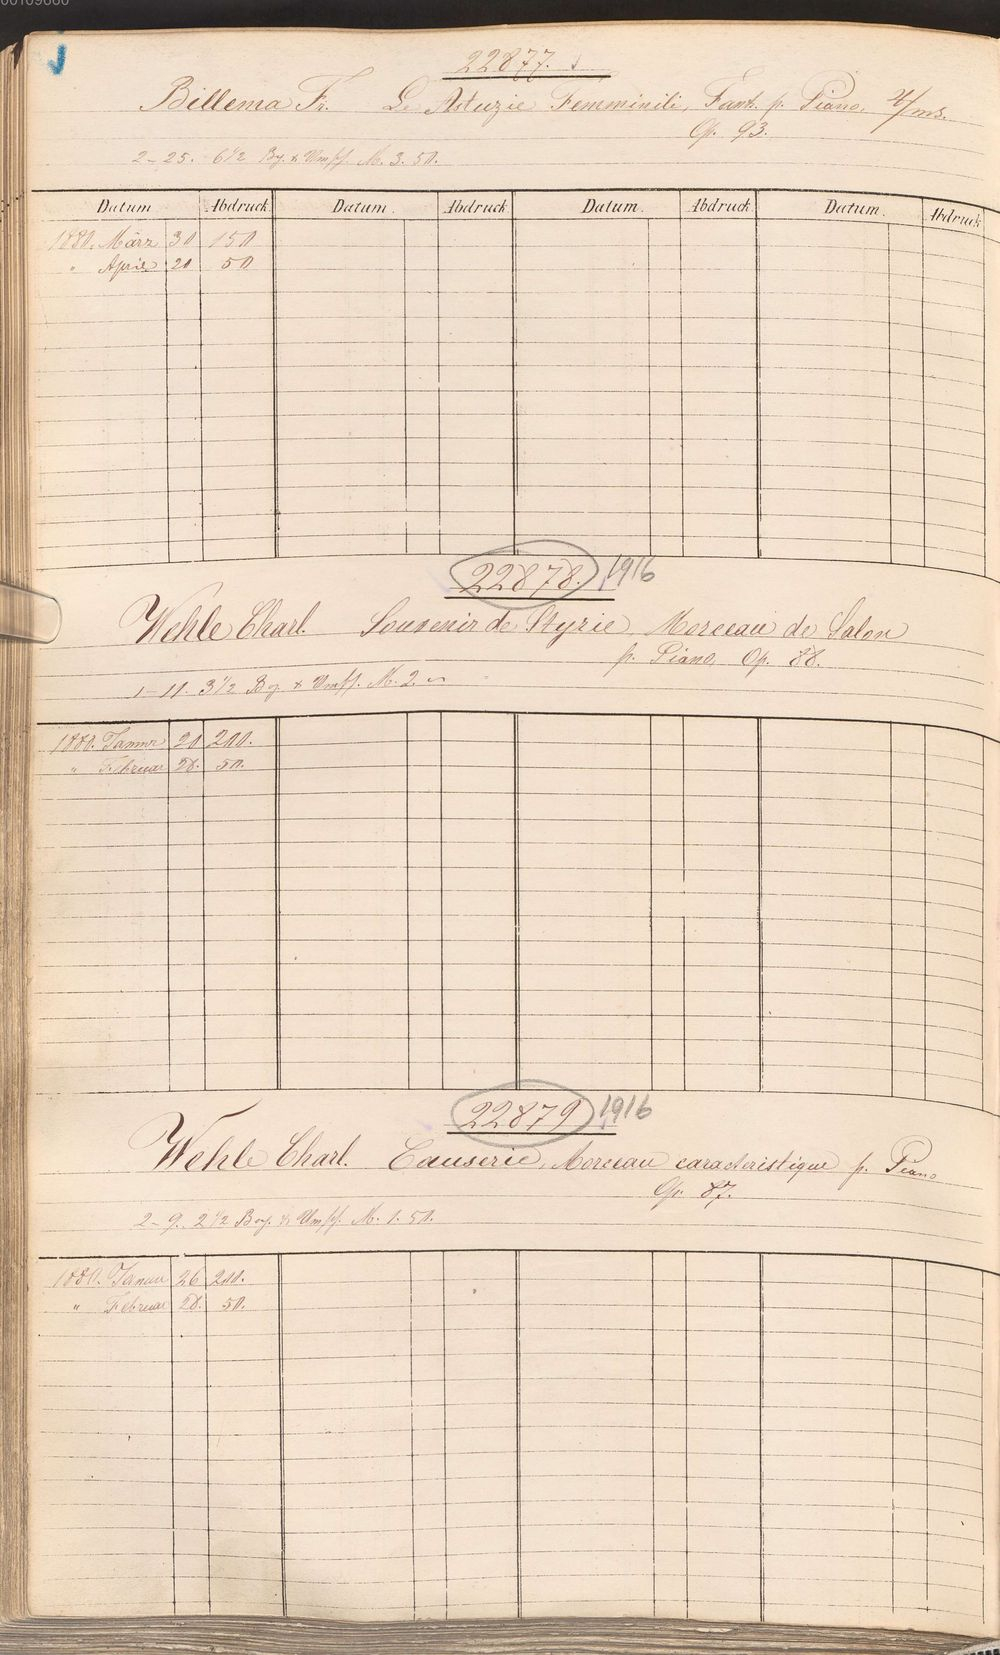 00109680
22877.
Billema Fr. Le Astuzie Femminili, Fant. p. Piano, 4/ms.
Op. 93.
2-25. 6 1/2 Bg. & Umschl. M. 3. 50.
Datum Abdruck Datum. Abdruck Datum. Abdruck Datum. Abdruck
1880. März 30 150
" April 20 50
22878. 1916
Wehle Charl. Souvenir de Styrie, Morceau de Salon
p. Piano Op. 88.
1-11. 3 1/2 Bg. & Umschl. M. 2
1880. Januar 20 200.
" Februar 28. 50.
22879 1916
Wehle Charl. Causerie, Morceau caracteristique p. Piano
Op. 87.
2-9. 2 1/2 Bog. & Umschl. M. 1. 50.
1880. Januar 26 200.
" Februar 28. 50.